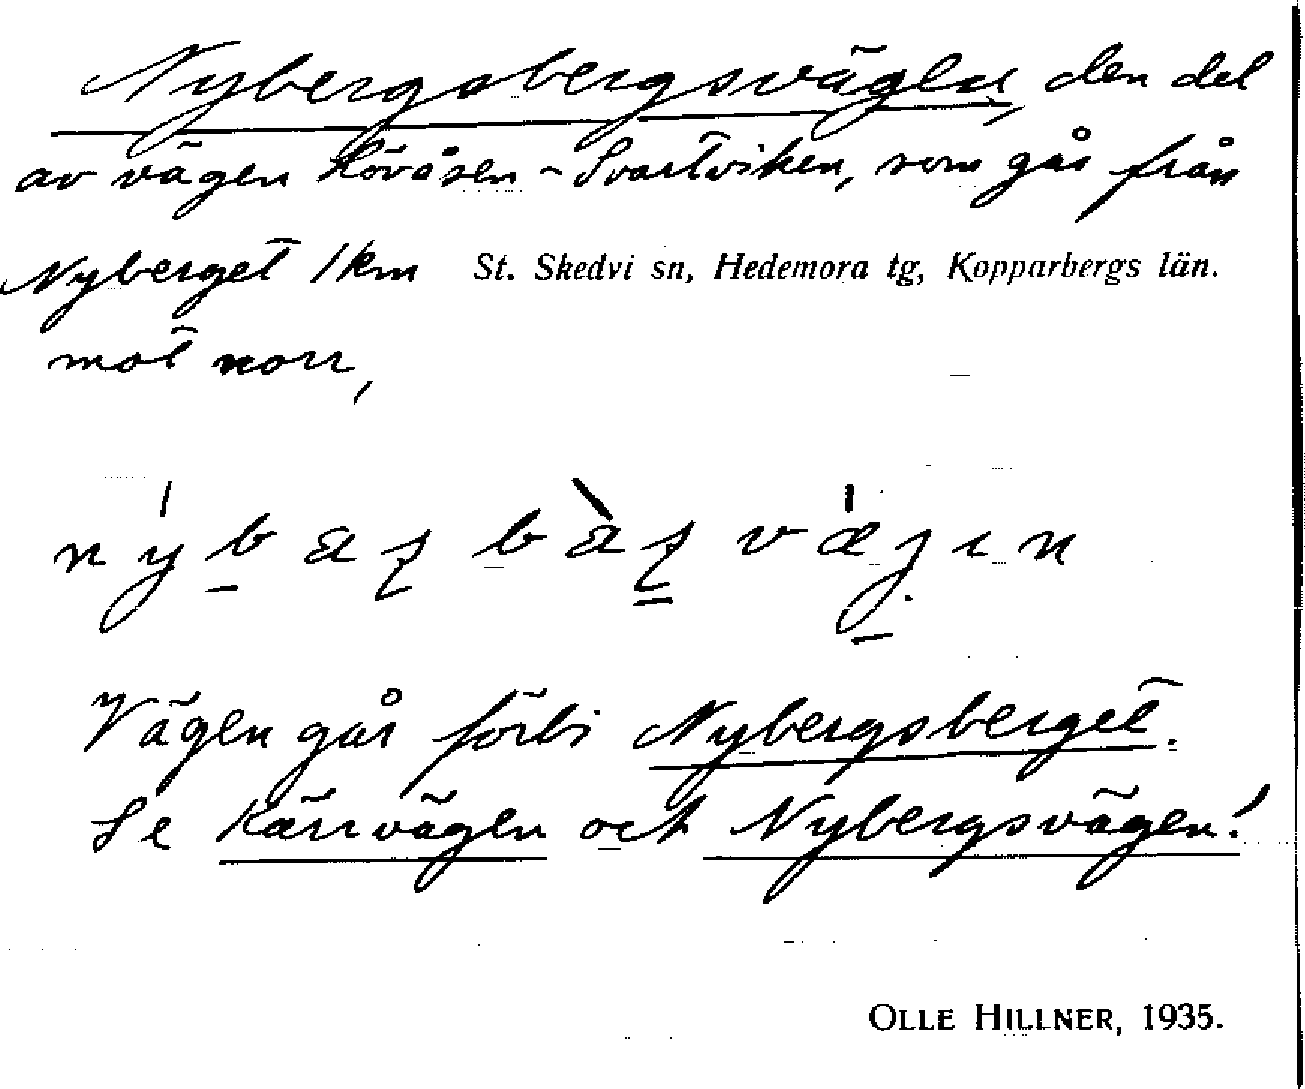 Nybergsbergsvägen, den del
av vägen Kövåsen - Svartviken, som går från
Nyberget 1 km St. Skedvi sn, Hedemora tg, Kopparbergs län.
mot norr,
Vägen går förbi Nybergsberget.
Se Kärrvägen och Nybergsvägen!
OLLE HILLNER, 1935.